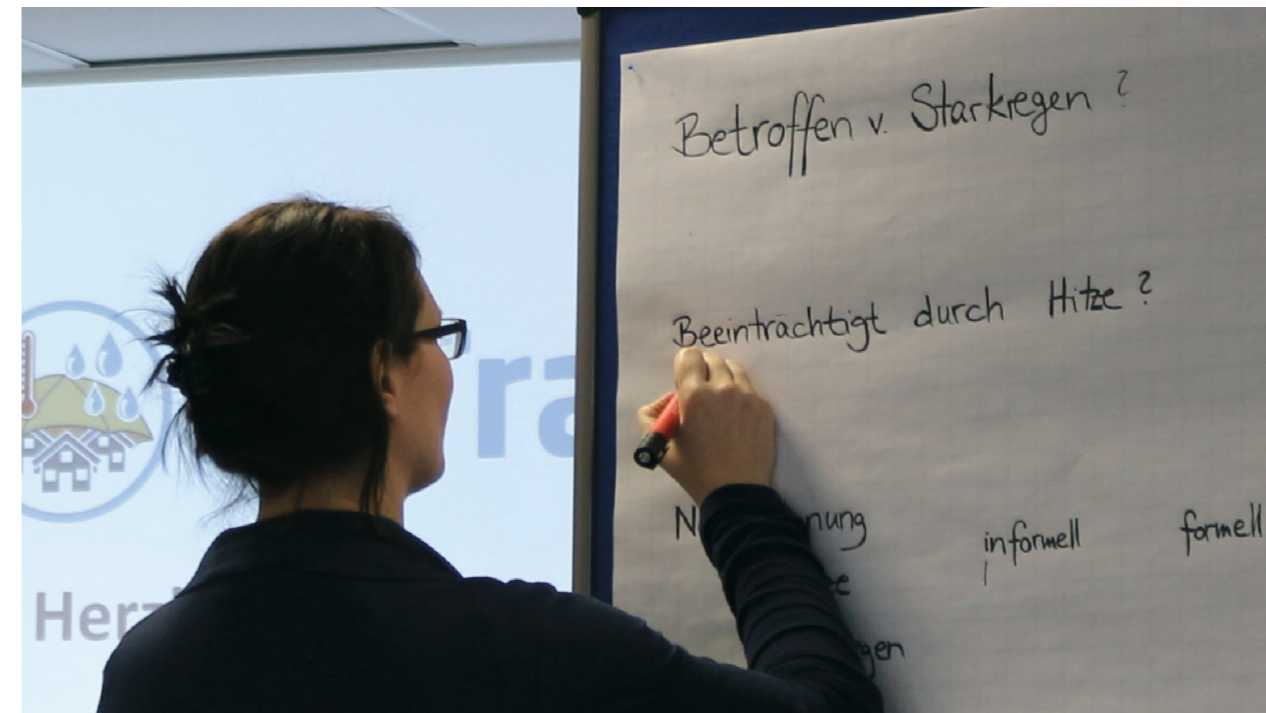 Betroffen v. Starkregen ?
Beeinträchtigt durch Hitze ?
informell formell